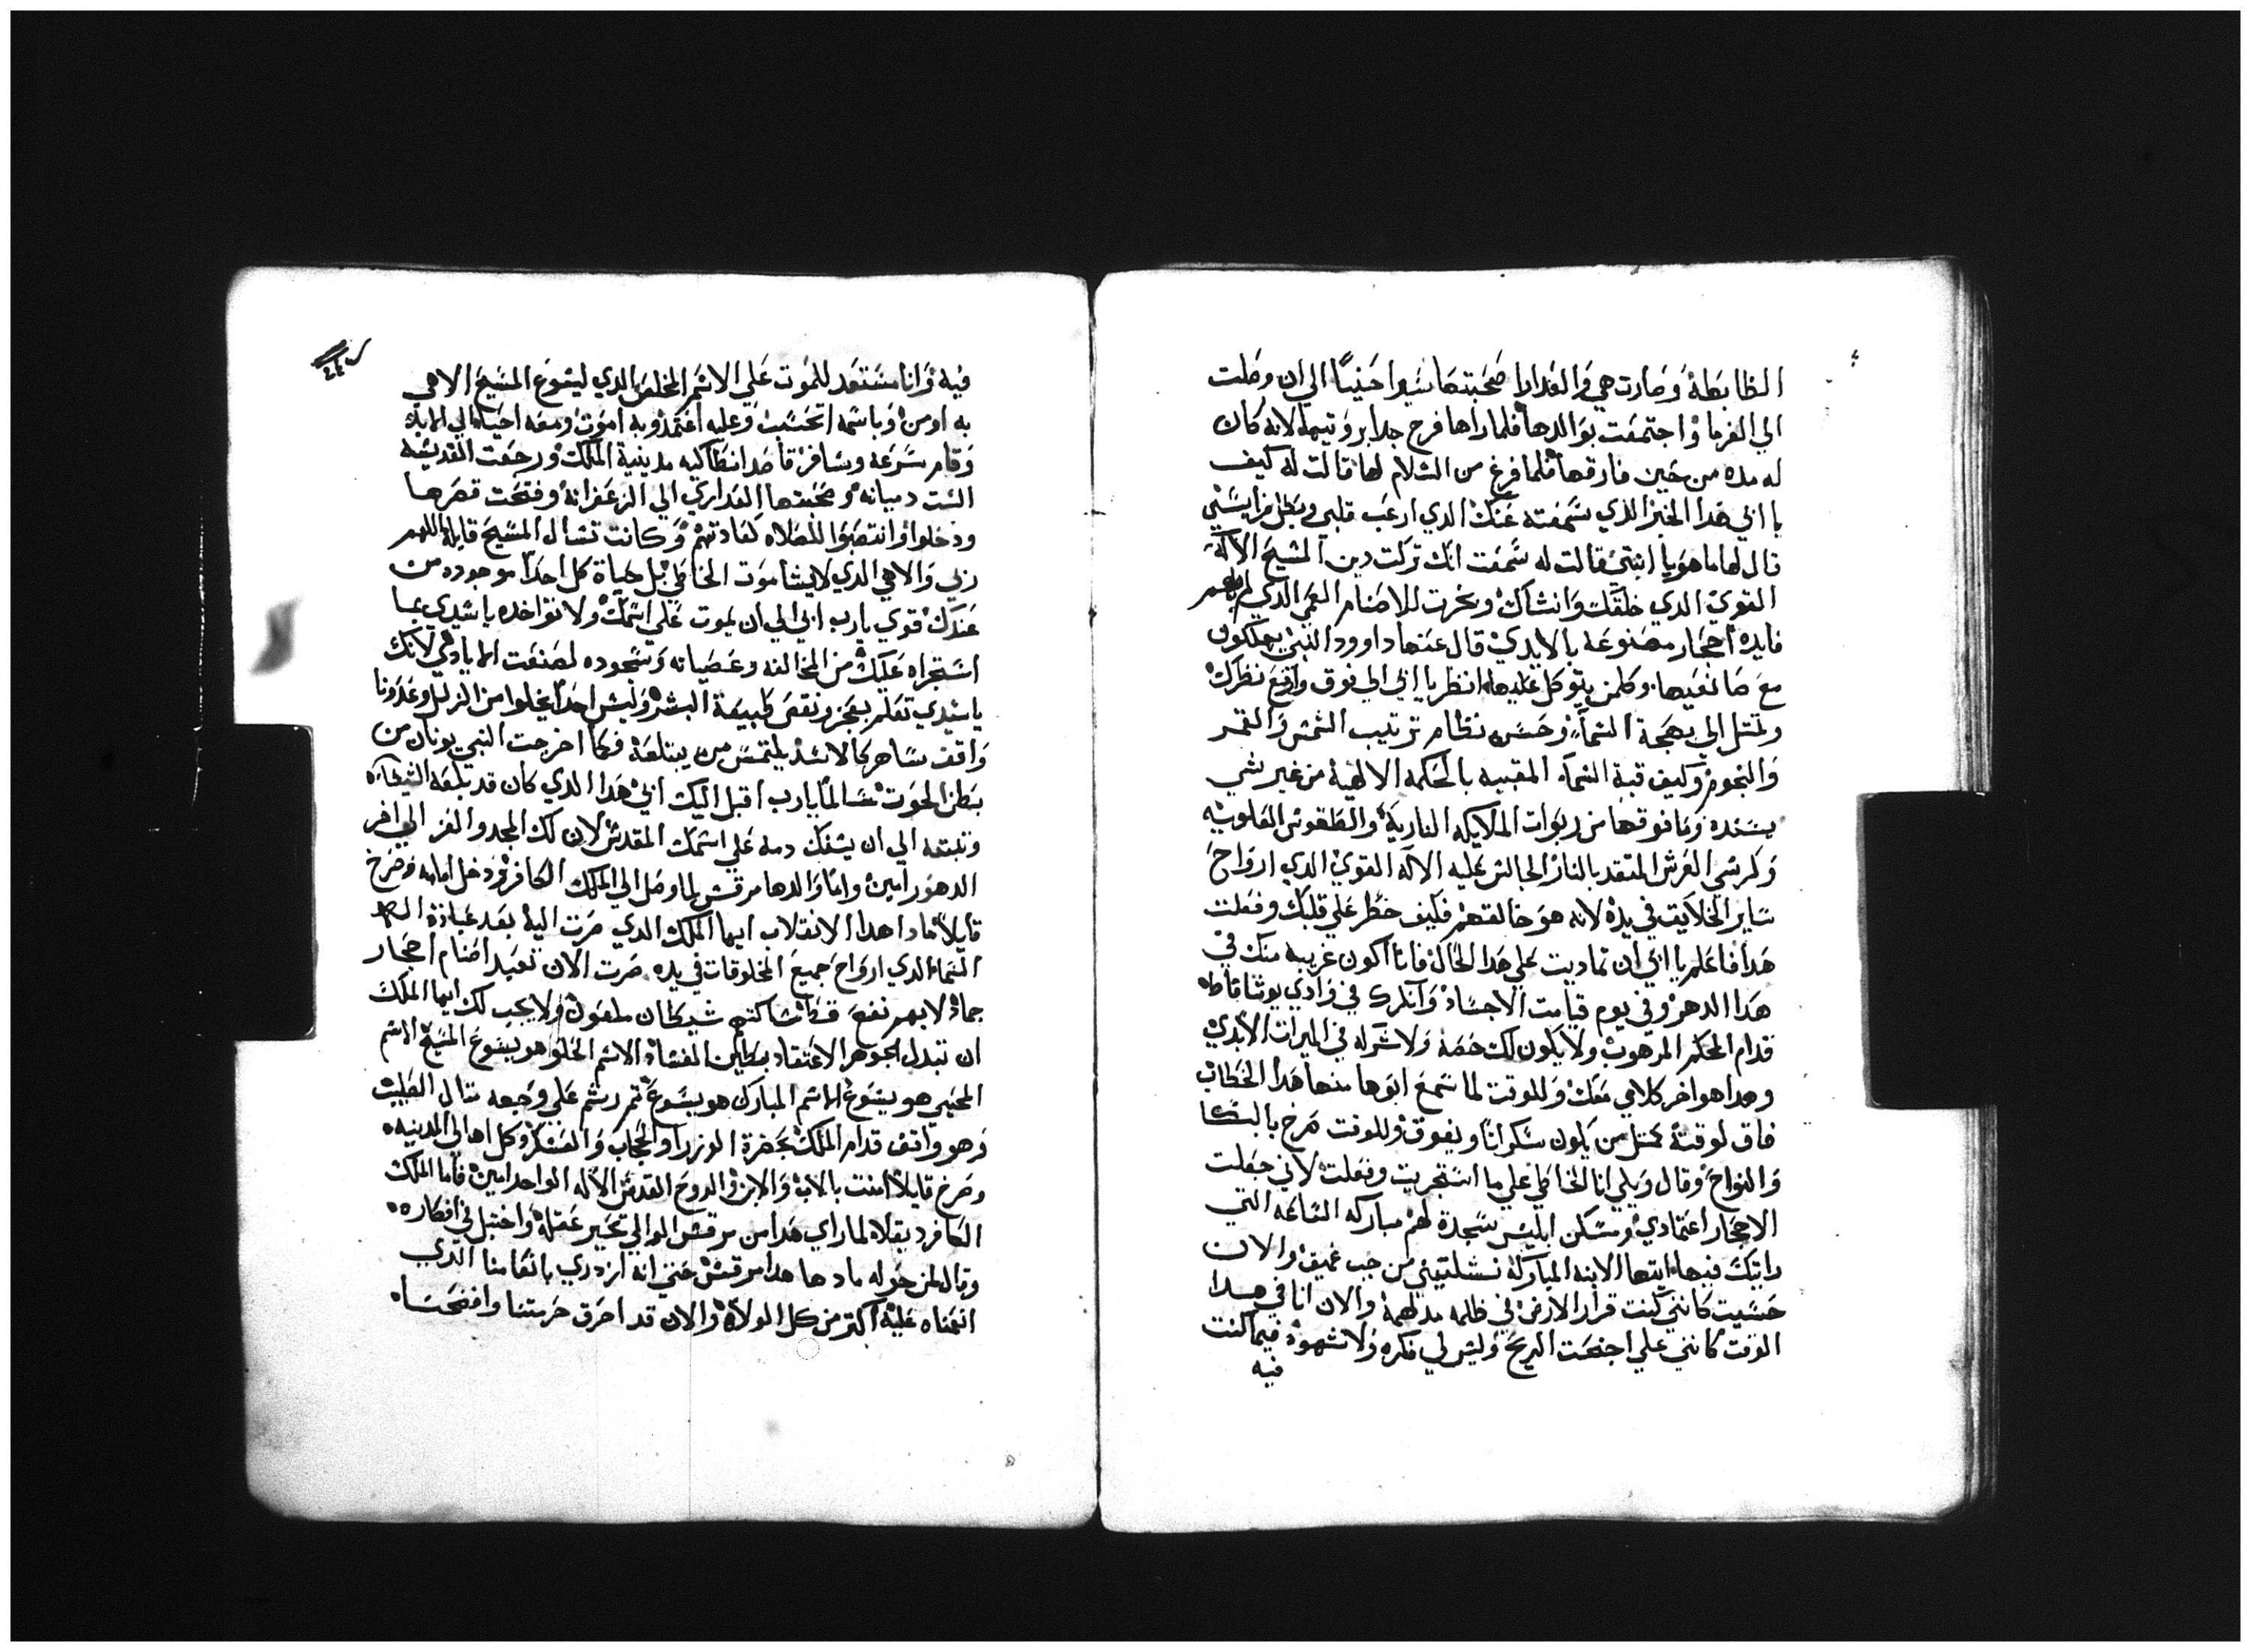 الظابطة وصارت هي والعدارا صحبتها سيرا حتيتاً الي ان وصلت
الي الفرما واجتمعت بوالدها فلما راها فرح جدا بروتيها لانه كان
له مده من حين فارقها فلما فرغ من السلام لها قالت له كيف
يا ابي هدا الخبر الذي سمعته عنك الدي ارعب قلبي وبطل فرايسي
قال لها ما هو يا ابنتي قالت له سمعت انك تركت دين المسيح الاله
القوي الدي خلقك وانشاك وبخرت للاصنام العمي الدي لم بهم
فايده احجار مصنوعه بالايدي قال عنها داوود النبي يهلكون
مع صانعيها وكلمن يتوكل عليها انظر يا ابي الي فوق وارفع نظرك
وتمتل الي بهجة السماء وحسن نظام ترتيب الشمس والقمر
والنجوم وكيف قبة السماء المقببه بالحكمه الالهية من غير شي
يسنده وما فوقها من ربوات الملايكه النارية والطغوس العلويه
وكرسي العرش المتقد بالنار الجالس عليه الاله القوي الدي ارواح
ساير الخلايق في يده لانه هو خالقهم فكيف خطر علي قلبك وفعلت
هدا فاعلم يا ابي ان تماديت علي هدا الحال فانا اكون غريبه منك في
هدا الدهر وفي يوم قيامت الاجساد وانكرك في وادي يوشافاط
قدام الحكم المرهوب ولا يكون لك حصة ولا شركه في الميرات الابدي
وهدا هو اخر كلامي معك وللوقت لما سمع ابوها منها هدا الخطاب
فاق لوقته كمتل من يكون سكرانا ويفوق وللوقت صرخ بالبكا
والنواح وقال ويلي انا الخاطي علي ما استجريت وفعلت لاني جعلت
الاحجار اعتمادي ومسكن ابليس سجدة لهم مباركه الساعه التي
رايتك فيها ايتها الابنه المباركة نشلتيني من جب عميق والان
حسيت كانني كنت قرار الارض في ظلمه مدلهمة والان انا في هدا
الوقت كانني علي اجنحت الريح وليس لي فكره ولا شهوة فيما كنت
فيه
فيه وانا مستعد للموت علي الاسم المخلص الدي ليسوع المسيح الاهي
به اومن وباسمه اتحسب وعليه اعتمد وبه اموت ومعه احيا الي الابد
وقام بسرعه وسافر قاصد انطاكيه مدينة الملك ورجعت القديسه
الست دميانه وصحبتها العداري الي الزعفرانة وفتحت قصرها
ودخلوا وانتصبوا للصلاه كعادتهم وكانت تسال المسيح قايلة اللهم
ربي والاهي الدي لا يشا موت الخاطي بل حياة كل احدا موجوده من
عندك قوي يا رب ابي الي ان يموت علي اسمك ولا تواخده يا سيدي بما
استجراه عليك من المخالفه وعصيانه وسجوده لصنعت الايادي لانك
يا سيدي تعلم بعجز ونقص طبيعة البشر وليس احدا يخلوا من الزلل وعدونا
واقف ساهر كالاسد يلتمس من يبتلعه فكما اخرجت النبي يونان من
بطن الحوت سالماً يا رب اقبل اليك ابي هدا الدي كان قد بلعه الشيطان
وتبته الي ان يسفك دمه علي اسمك المقدس لان لك المجد والعز الي اخر
الدهور امين واما والدها مرقس لما وصل الي الملك الكافر ودخل امامه وصرخ
قايلا مادا هدا الانقلاب ايها الملك الدي صرت اليه بعد عبادة اله
السماء الدي ارواح جميع المخلوقات في يده صرت الان تعبد اصنام احجار
جماد لا بهم نفع قط ساكنهم شيطان ملعون ولا يجب لك ايها الملك
ان تبدل جوهر الاعتقاد بطين الفساد الاسم الحلو هو يسوع المسيح الاسم
المحيي هو يسوع الاسم المبارك هو يسوع تم رشم علي وجهه متال الصليب
وهو واقف قدام الملك بحضرة الوزرا والحجاب والعسكر وكل اهالي المدينه
وصرخ قايلا امنت بالاب والابن والروح القدس الاله الواحد امين فاما الملك
الكافر دقلا لما راي هدا من مرقس الوالي تحير عقله واختبل في افكاره
وقال لمن حوله مادها هدا مرقس حتي انه ازدري بانعامنا الدي
انعمناه عليه اكتر من كل الولاة والان قد احرق حرمتنا وافضحنا